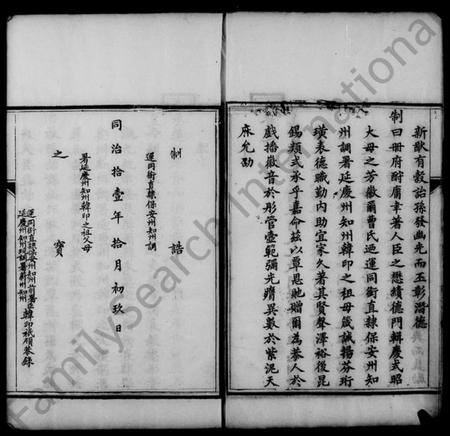 新猷有穀詒孫發幽光而玉彰潛德
制曰冊府酧庸聿著人臣之懋績德門輯慶式昭
大母之芳徽爾曹氏迺運同銜直隸保安州知
州調署延慶州知州韓印之祖母箴誡揚芬珩
璜表德職勤內助宜家久著其賢聲澤裕後昆
錫類式承乎嘉命茲以覃恩貤贈爾為恭人於
戲播徽音於彤管壺範彌光膺異數於紫泥天
庥允劭
制誥
運同銜直隸保安州知州調
署延慶州知州韓印之祖父母
同治拾壹年拾月初玖日
之寶
運同銜直隸保安州知州前署
延慶州知州現調署薊州知州
臣韓印祇領恭錄
FamilySearch International